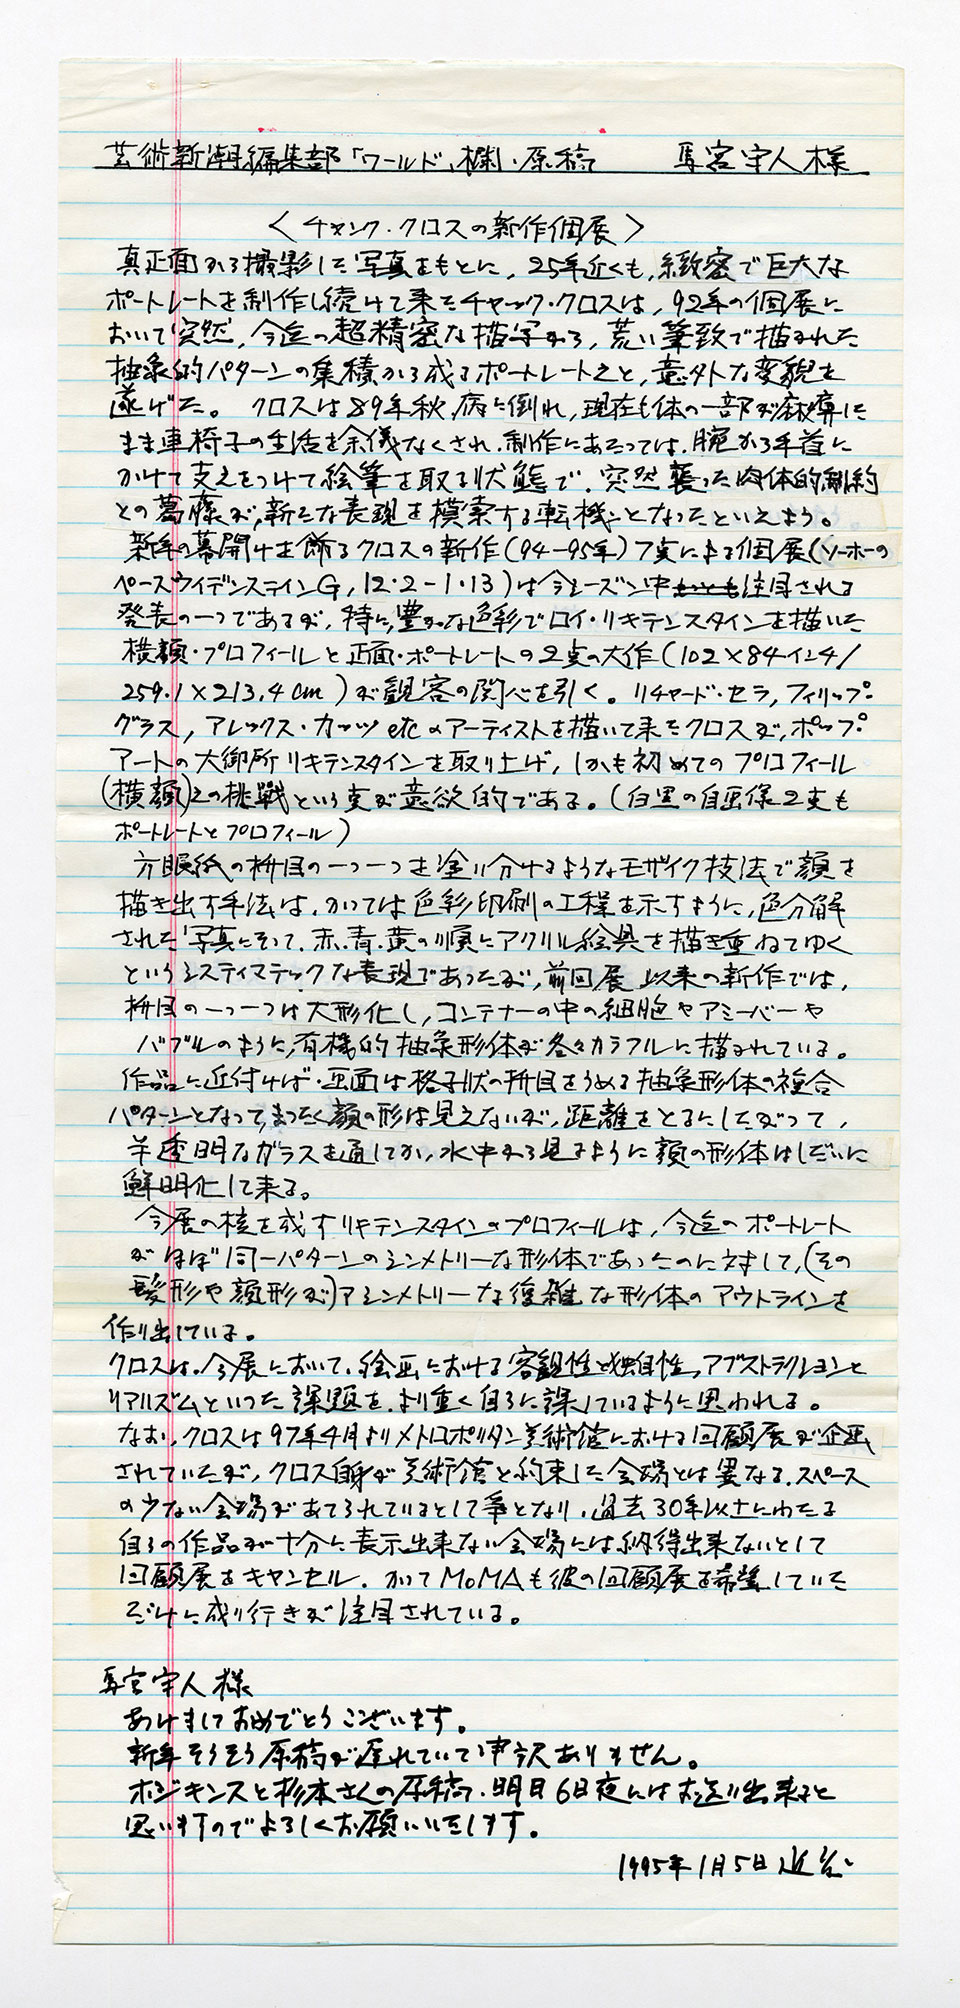 芸術新潮編集部「ワールド」欄・原稿　馬宮守人様
〈チャック・クロスの新作個展〉
真正面から撮影した写真をもとに、25年近くも、緻密で巨大な
ポートレートを制作し続けて来たチャック・クロスは、92年の個展に
おいて突然、今迄の超精密な描写から、荒い筆致で描かれた
抽象的パターンの集積から成るポートレートえと、意外な変貌を
遂げた。クロスは89年秋、病に倒れ、現在も体の一部が麻痺した
まま車椅子の生活を余儀なくされ、制作にあたっては、腕から手首に
かけて支えをつけて絵筆を取る状態で、突然襲った肉体的制約
との葛藤が、新たな表現を模索する転機となったといえよう。
新年の幕開けを飾るクロスの新作(94-95年)7点による個展(ソーホーの
ペースウィルデンステインG, 12・2-1・13)は今シーズン中もっとも注目される
発表の一つであるが、特に、豊かな色彩でロイ・リキテンスタインを描いた
横顔・プロフィールと正面・ポートレートの2点の大作(102×84インチ/
259.1×213.4cm)が観客の関心を引く。リチャード・セラ, フィリップ・
グラス, アレックス・カッツetcのアーティストを描いて来たクロスが、ポップ・
アートの大御所リキテンスタインを取り上げ、しかも初めてのプロフィール
(横顔)えの挑戦という点が意欲的である。(白黒の自画像2点も
ポートレートとプロフィール)
方眼紙の枡目の一つ一つを塗り分けるようなモザイク技法で顔を
描き出す手法は、かつては色彩印刷の工程を示すように、色分解
された写真にそって、赤、青、黄の順にアクリル絵具を描き重ねてゆく
というシスティマティックな表現であったが、前回展以来の新作では、
枡目の一つ一つは大形化し、コンテナーの中の細胞やアミーバーや
バブルのように、有機的抽象形体が各々カラフルに描かれている。
作品に近付けば・画面は格子状の枡目をうめる抽象形体の複合
パターンとなって、まったく顔の形は見えないが、距離をとるにしたがって、
半透明なガラスを通してか、水中から見るように顔の形体はしだいに
鮮明化して来る。
今展の核を成すリキテンスタインのプロフィールは、今迄のポートレート
がほぼ同一パターンのシンメトリーな形体であったのに対して、(その
髪形や顔形が)アシンメトリーな複雑な形体のアウトラインを
作り出している。
クロスは、今展において、絵画における客観性と独自性、アブストラクションと
リアリズムといった課題を、より重く自らに課しているように思われる。
なお、クロスは97年4月よりメトロポリタン美術館における回顧展が企画
されていたが、クロス自身が美術館と約束した会場とは異なる、スペース
の少ない会場があてられているとして争となり、過去30年以上にわたる
自らの作品が十分に表示出来ない会場には納得出来ないとして
回顧展をキャンセル、かつてMoMAも彼の回顧展を希望していた
だけに成り行きが注目されている。
馬宮守人様
あけましておめでとうございます。
新年そうそう原稿が遅れていて申訳ありません。
ホジキンスと杉本さんの原稿、明日6日夜にはお送り出来ると
思いますのでよろしくお願いいたします。
1995年1月5日